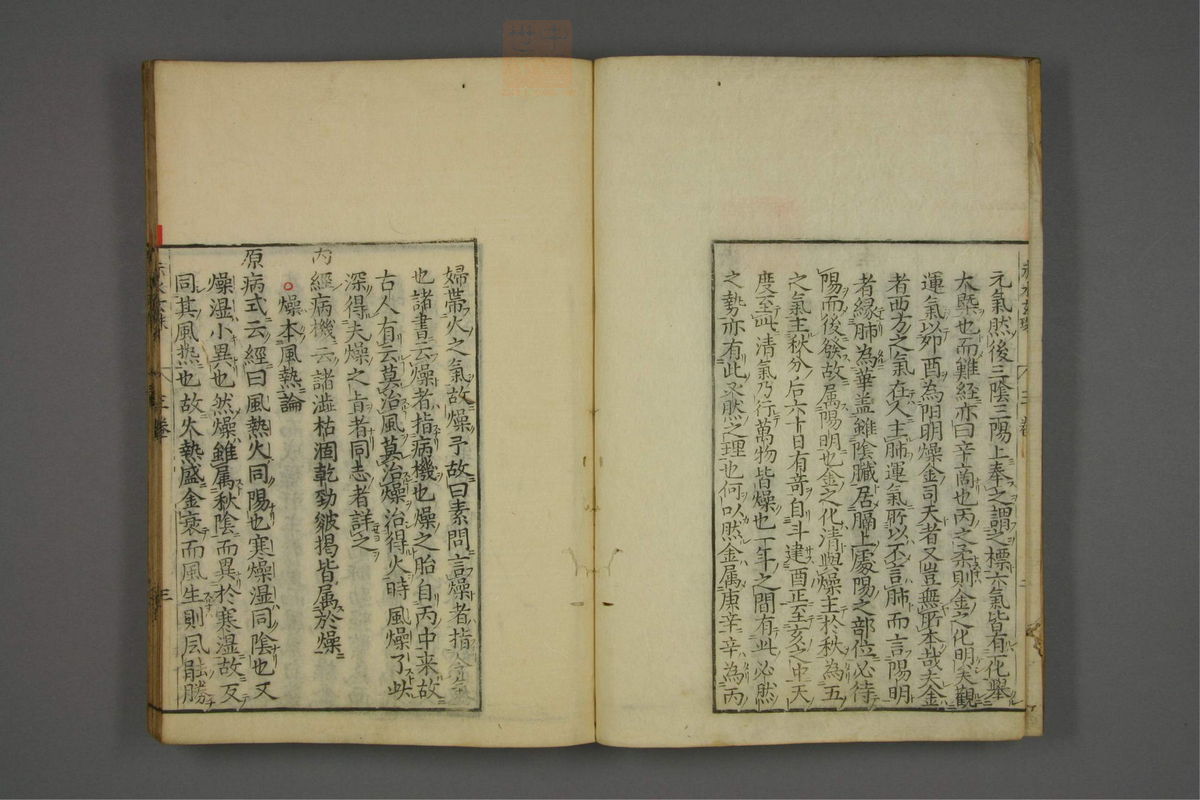 元氣然後三陰三陽上奉之謂之標六氣皆有一化舉
大槩也而難經亦曰辛商也丙之柔則金之化明矣觀
運氣以卯酉為阳明燥金司天者又豈無所本哉夫金
者西方之氣在人主肺運氣所以不言肺而言陽明
者緣肺為華盖雖陰臟居膈上處陽之部位必待
陽而後發故属陽明也金之化清與燥主於秋為五
之氣主秋分后六十日有竒自斗建酉正至亥之中天
度至此清氣乃行萬物皆燥也一年之間有此必然
之勢亦有此必然之理也何以然金属庚辛辛為丙
婦帶火之氣故燥乎故曰素問言燥者指金氣
也諸書云燥者指病機也燥之胎自丙中来故
古人有云莫治風莫治燥治得火時風燥了此
深得夫燥之旨者同志者詳之
内經病機云諸澁枯涸乾勁皴揭皆属於燥
燥本風熱論
原病式云經曰風熱火同陽也寒燥湿同陰也又
燥湿小異也然燥雖属秋陰而異於寒湿故反
同其風热也故火熱盛金衰而風生則风能勝
三卷
三